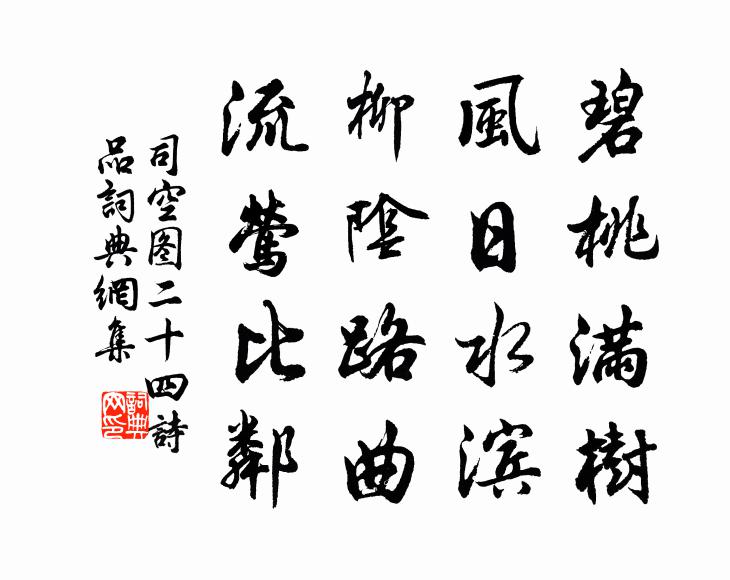 碧桃满樹
風日水滨
柳陰路曲
流莺比鄰
司空图二十四詩
品詞典網集
詞典网印